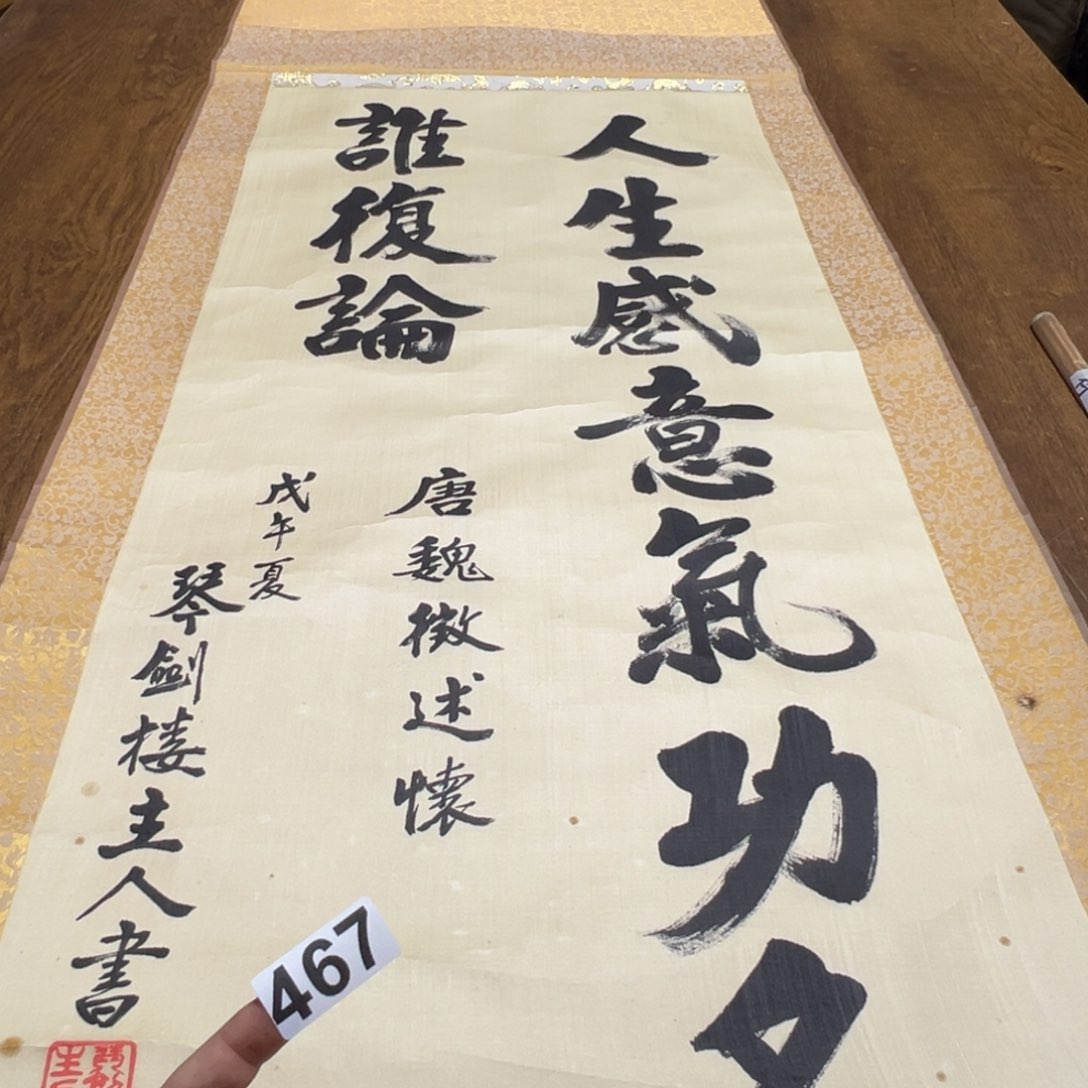 人生感意氣功名
誰復論
唐魏徵述懐
戊午夏
琴劍楼主人書
467